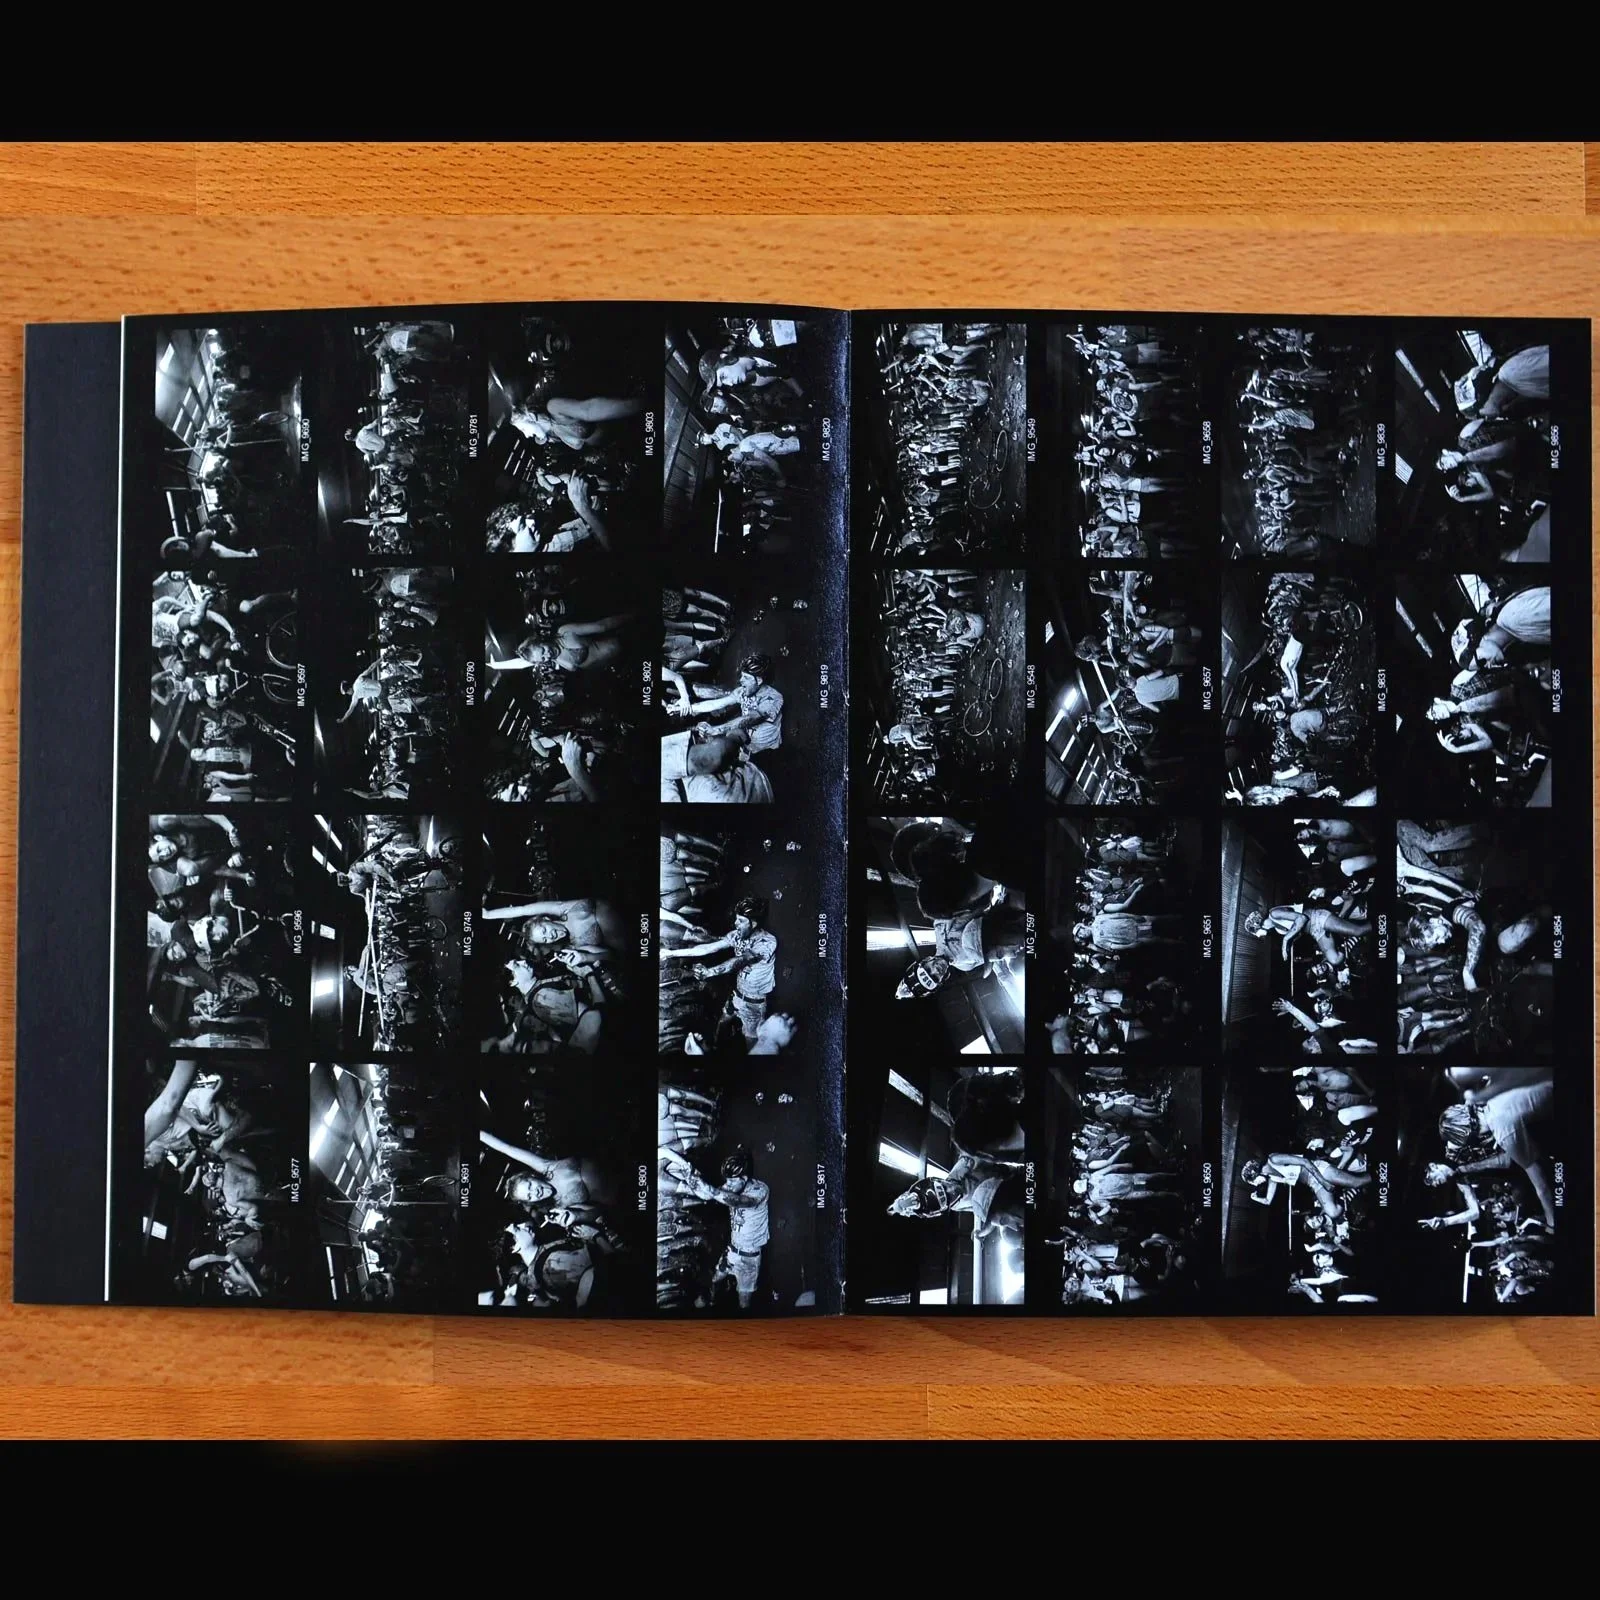 IMG_9577
IMG_9596
IMG_9597
IMG_9690
IMG_9691
IMG_9749
IMG_9780
IMG_9781
IMG_9800
IMG_9801
IMG_9802
IMG_9803
IMG_9817
IMG_9818
IMG_9819
IMG_9820
_MG_7596
_MG_7597
IMG_9548
IMG_9549
IMG_9650
IMG_9651
IMG_9657
IMG_9658
IMG_9822
IMG_9823
IMG_9831
IMG_9839
IMG_9853
IMG_9854
IMG_9855
IMG_9856